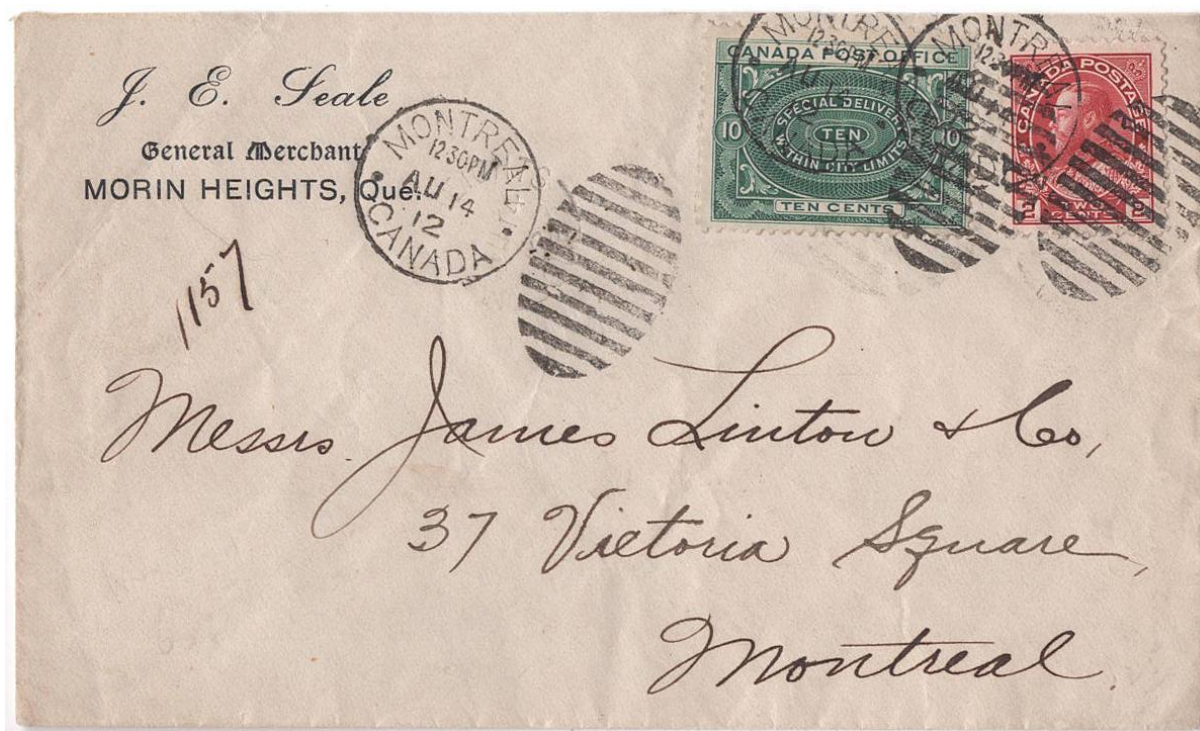 J. E. Seale
General Merchant
MORIN HEIGHTS, Que.
MONTREAL
12 30 PM
AU 14
12
CANADA
1157
CANADA POST OFFICE
SPECIAL DELIVERY
10 TEN 10
WITHIN CITY LIMITS
TEN CENTS
MONTREAL
12 30 PM
MONTREAL
CANADA POSTAGE
2 TWO 2
CENTS
Messrs. James Linton & Co,
37 Victoria Square,
Montreal.